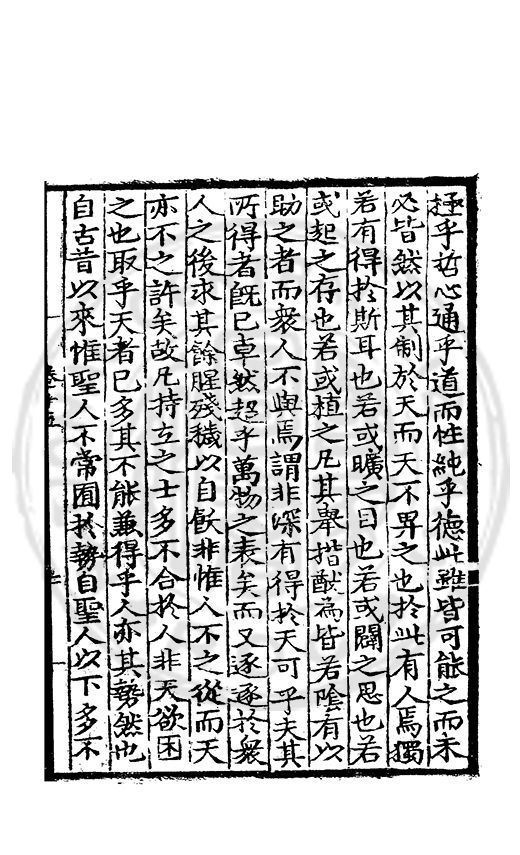 極乎哲心通乎道而性純乎德此雖皆可能之而未
必皆然以其制於天而天不畀之也於此有人焉獨
若有得於斯耳也若或曠之目也若或闢之思也若
或起之存也若或植之凡其舉措猷為皆若陰有以
助之者而衆人不與焉謂非深有得於天可乎夫其
所得者旣已卓然超乎萬物之表矣而又逐逐於衆
人之後求其餘腥殘穢以自飫非惟人不之從而天
亦不之許矣故凡持立之士多不合於人非天欲困
之也取乎天者已多其不能兼得乎人亦其勢然也
自古昔以來惟聖人不常囿於勢自聖人以下多不
卷十五